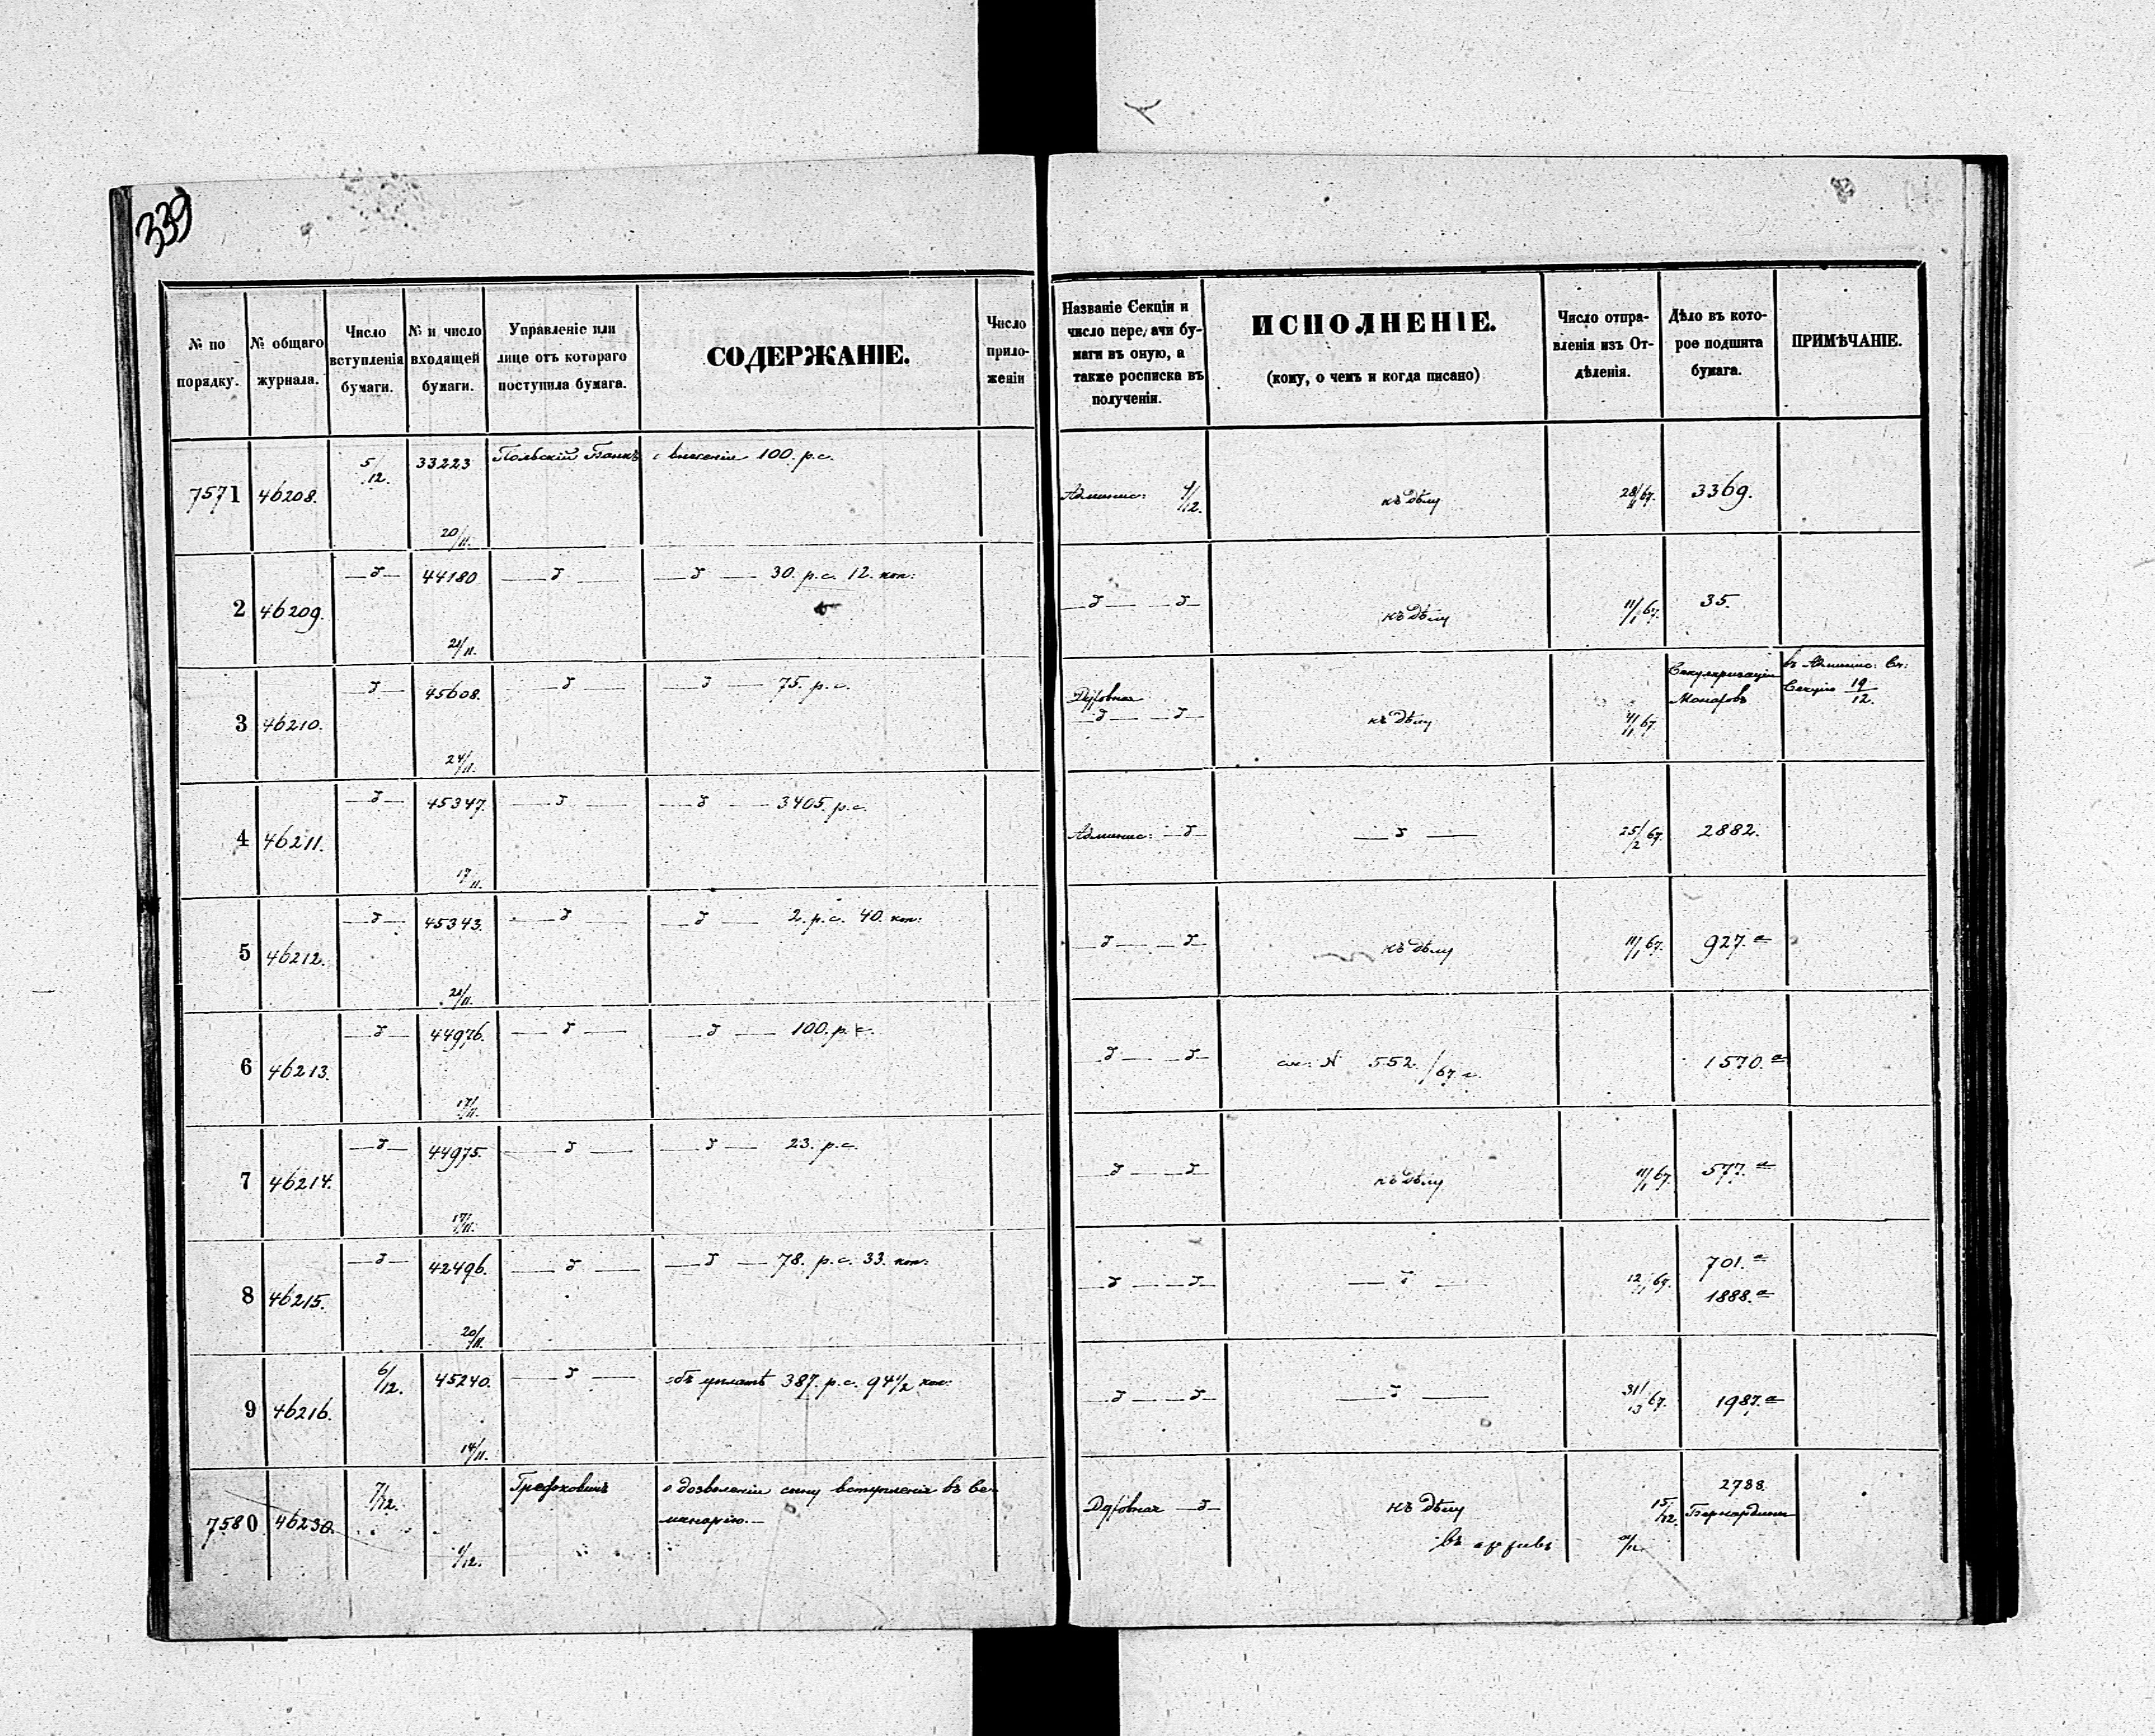 339
№ по порядку.
№ общаго журнала.
Число вступленія бумаги.
№ и число входящей бумаги.
Управленіе или лице отъ котораго поступила бумага.
СОДЕРЖАНІЕ.
Число прило-женій
Названіе Секціи и число пере ачи бу-маги въ оную, а также росписка въ полученіи.
ИСПОЛНЕНІЕ.
(кому, о чемъ и когда писано)
Число отпра-вленія изъ От-дѣленія.
Дѣло въ кото-рое подшита бумага.
ПРИМѢЧАНІЕ.
7571 46208. 5/12. 33223 20/11. Польскій Банкъ о внесеніи 100. р.с. Админис: 4/12. къ дѣлу 3369.
2 46209. —д— 44180 21/11. —д— —д— 30. р.с. 12. коп: —д— —д— къ дѣлу 11/1 67. 35.
3 46210. —д— 45608. 24/11. —д— —д— 75. р.с. Духовная —д— —д— къ дѣлу 67. Секуляризаціи въ Админис: Секцію 19/12.
4 46211. —д— 45347. 17/11. —д— —д— 3405. р.с. Админис: —д— —д— 25/2 67. 2882.
5 46212. —д— 45343. 21/11. —д— —д— 2. р.с. 40. коп: —д— —д— къ дѣлу 11/1 67. 927. а
6 46213. —д— 44976. 17/11. —д— —д— 100. р.с. —д— —д— см: N 552./67. г. 1570. а
7 46214. —д— 44975. 17/11. —д— —д— 23. р.с. —д— —д— къ дѣлу 11/1 67. 577. а
8 46215. —д— 42496. 20/11. —д— —д— 78. р.с. 33. коп: —д— —д— —д— 12/1 67. 701. а
1888. а
9 46216. 6/12. 45240. 14/11. —д— объ уплатѣ 387. р.с. 94 1/2 коп: —д— —д— —д— 67. 1987. а
7580 46230. 7/12. 1/12. о дозволеніи сыну вступленія въ се-
минарію.— Духовная —д— къ дѣлу 15/12. 2788.
Бернардины
въ архивъ